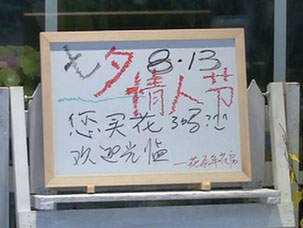 七夕 8·13
情人节
您买花了吗
欢迎光临